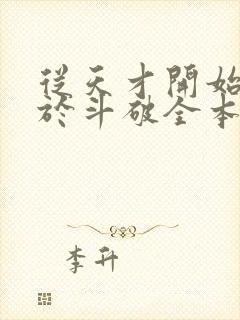 從天才開始
於斗破全本
李升